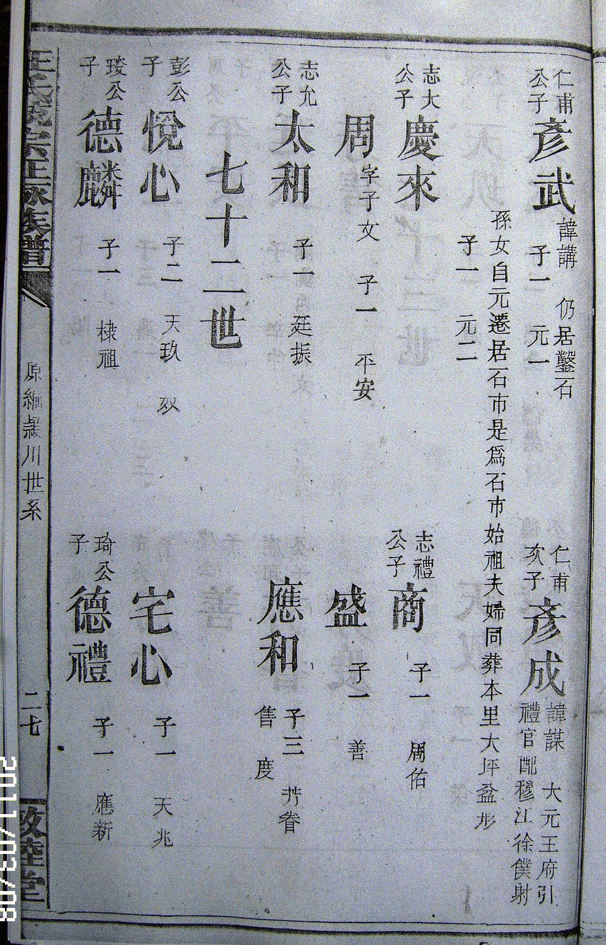 仁甫公子 彥武 諱講 仍居鑿石
子一 元一
仁甫次子 彥成 諱謀 大元王府引
禮官配穆江徐僕射
孫女自元遷居石市是爲石市始祖夫婦同葬本里大坪盆形
子一 元二
志大公子 慶來
志禮公子 商 子一 周佑
周 字子文 子一 平安
盛 子一 善
志允公子 太和 子一 廷振
應和 子三 芳眷
售 度
七十二世
彭公子 悅心 子二 天玖
宅心 子一 天兆
公子 德麟 子一 棣祖
琦公子 德禮 子一 應新
氏 宗正 族譜
原編 川世系
二七
敦睦堂
2011/03/08